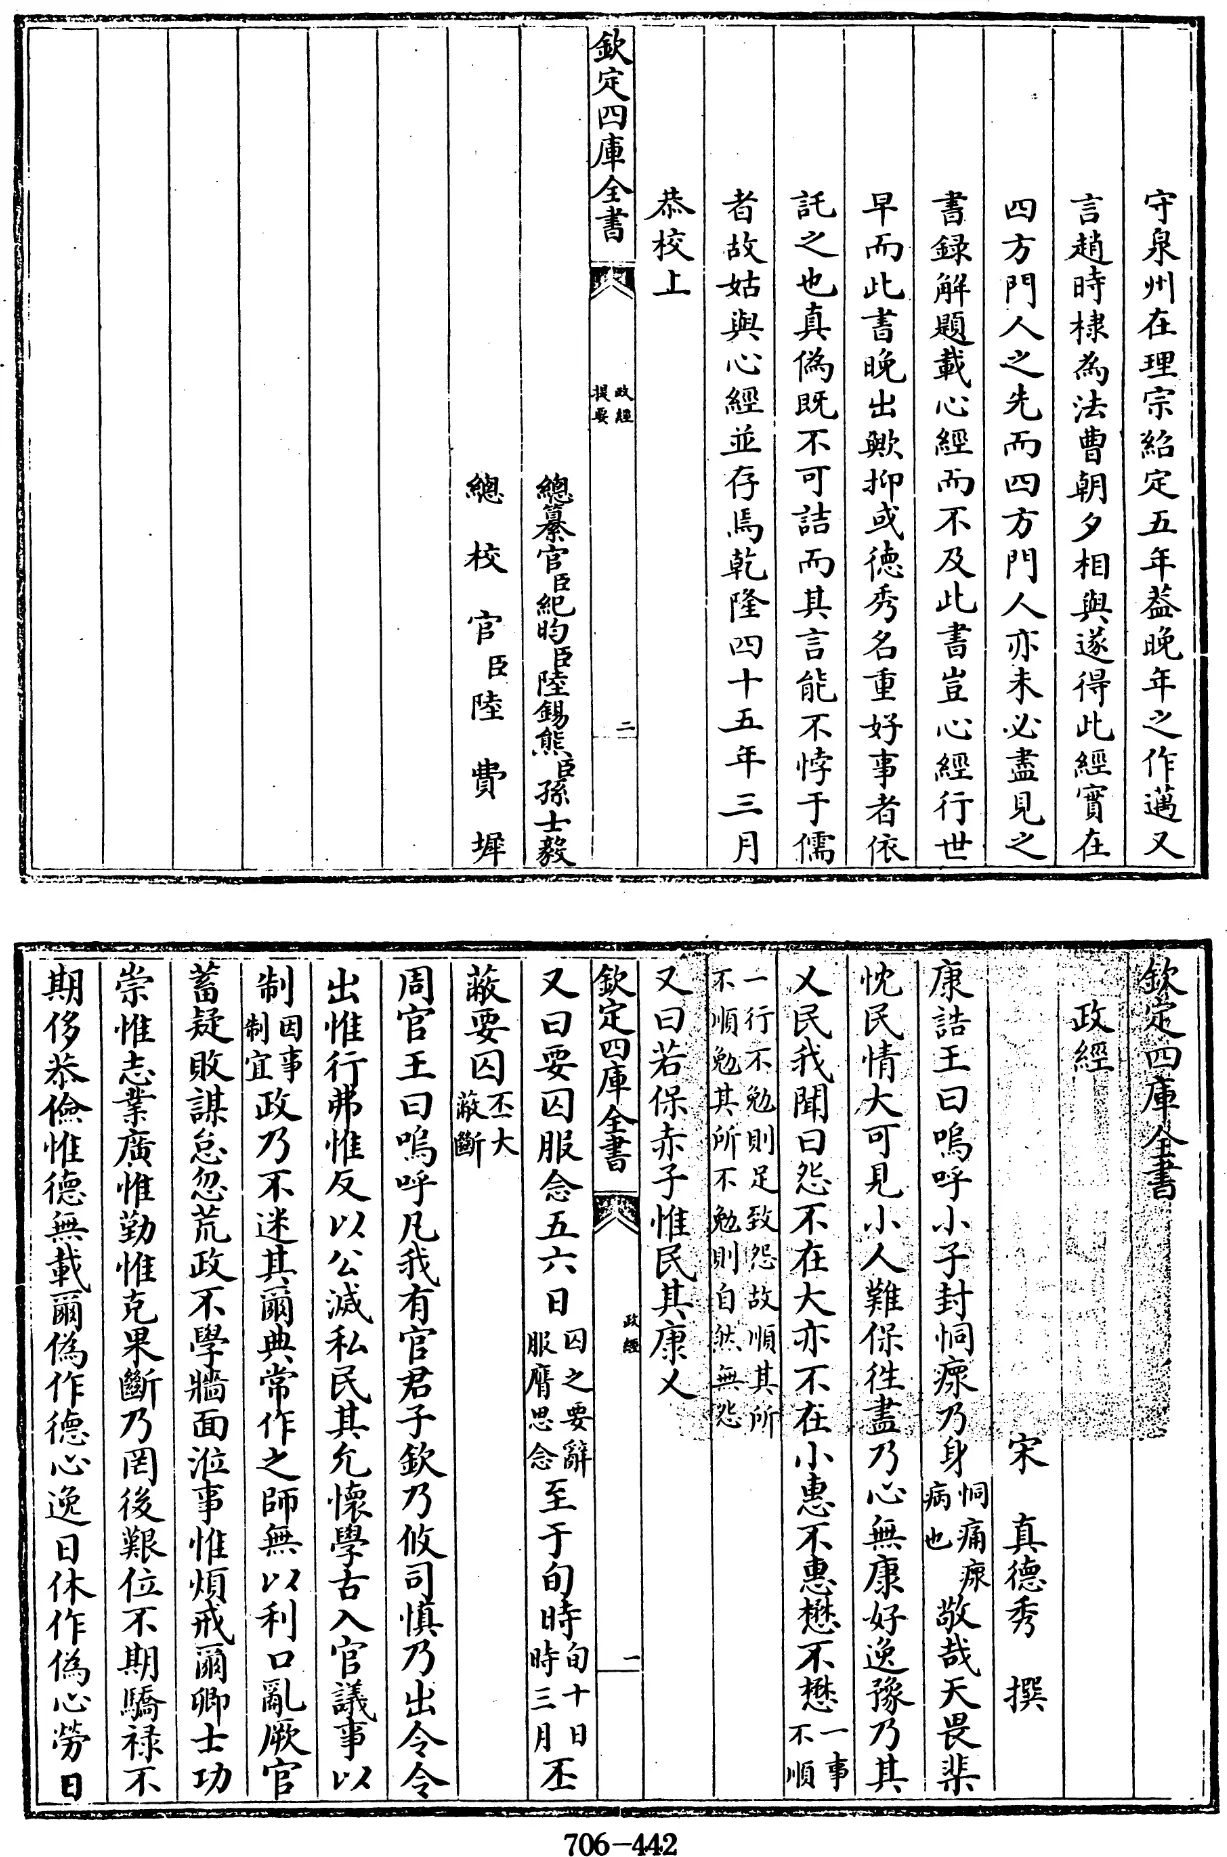 守泉州在理宗紹定五年葢晚年之作邁又
言趙時棣為法曹朝夕相與遂得此經實在
四方門人之先而四方門人亦未必盡見之
書録解題載心經而不及此書豈心經行世
早而此書晚出歟抑或德秀名重好事者依
託之也真偽既不可詰而其言能不悖于儒
者故姑與心經並存焉乾隆四十五年三月
恭校上
欽定四庫全書
政經
提要
二
總纂官臣紀昀臣陸錫熊臣孫士毅
總校官臣陸費墀
欽定四庫全書
政經
宋 真德秀 撰
康誥王曰嗚呼小子封恫瘝乃身恫痛瘝病也敬哉天畏棐
忱民情大可見小人難保徃盡乃心無康好逸豫乃其
乂民我聞曰怨不在大亦不在小惠不惠懋不懋一事不順
一行不勉則足致怨故順其所
不順勉其所不勉則自然無怨
又曰若保赤子惟民其康乂
欽定四庫全書
政經
一
又曰要囚服念五六日囚之要辭服膺思念至于旬時旬十日時三月丕
蔽要囚丕大蔽斷
周官王曰嗚呼凡我有官君子欽乃攸司慎乃出令令
出惟行弗惟反以公滅私民其允懐學古入官議事以
制因事制宜政乃不迷其爾典常作之師無以利口亂厥官
蓄疑敗謀怠忽荒政不學牆面涖事惟煩戒爾卿士功
崇惟志業廣惟勤惟克果斷乃罔後艱位不期驕祿不
期侈恭儉惟德無載爾偽作德心逸日休作偽心勞日
706-442